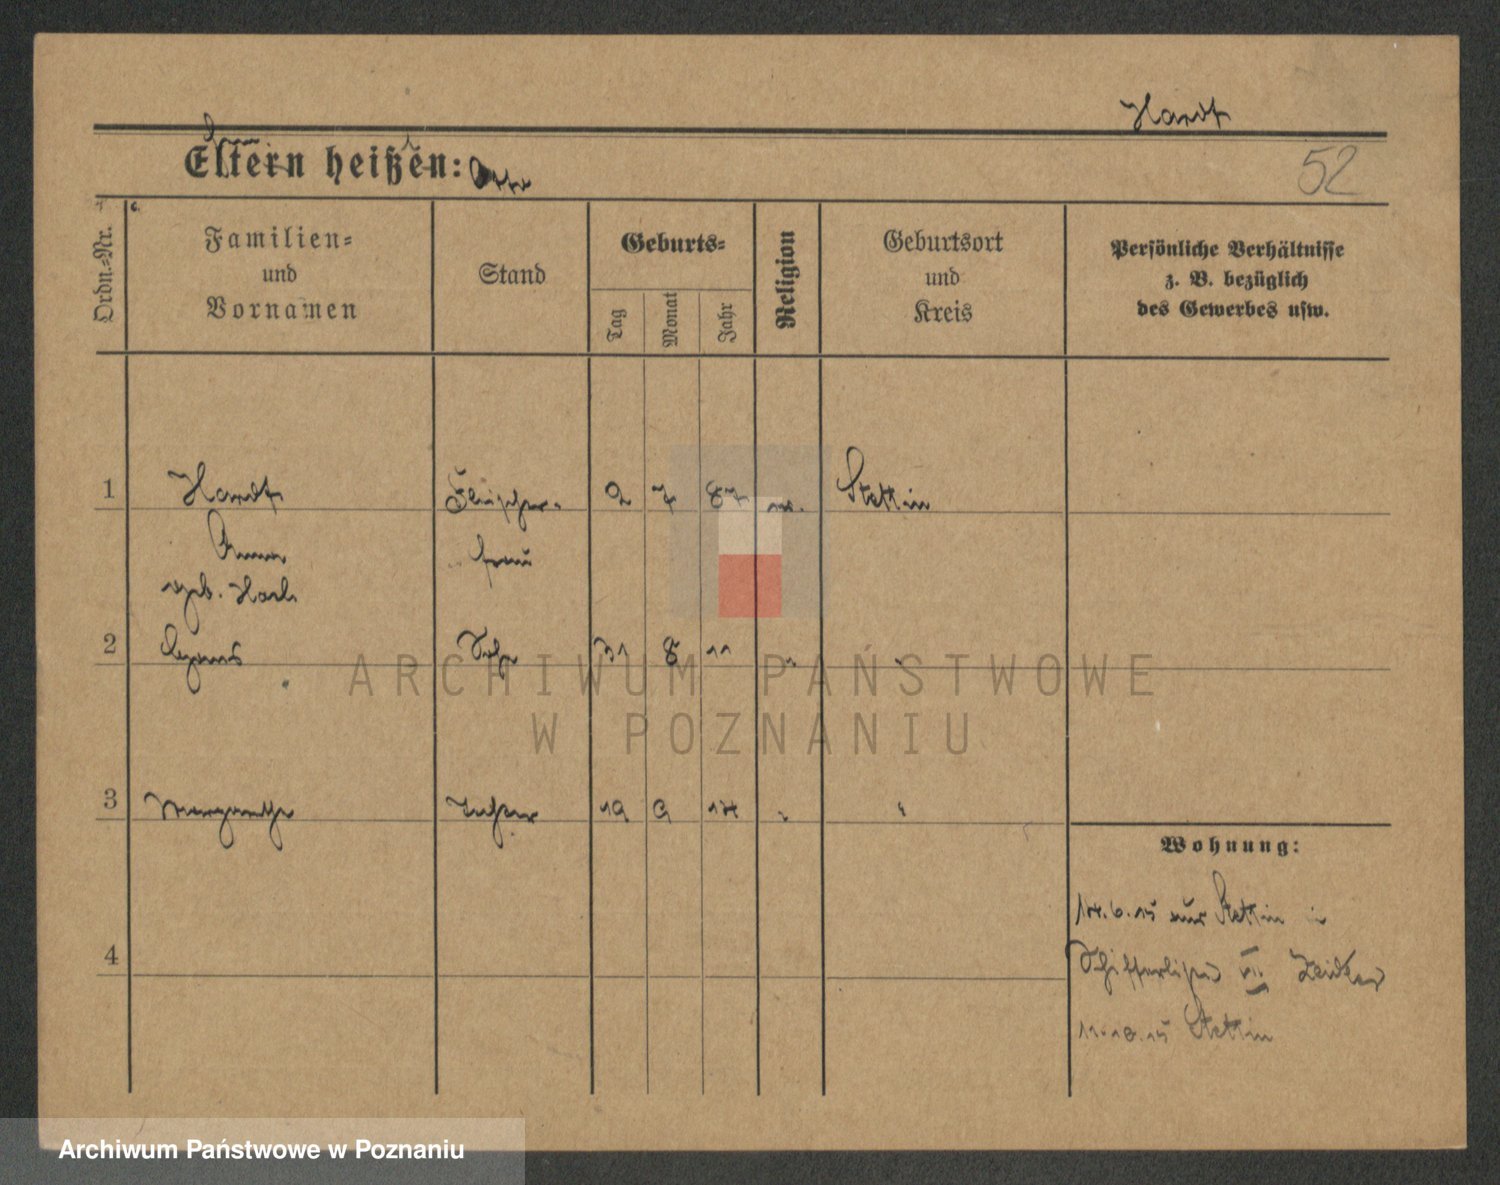 Hardt
Eltern heißen:
52
Ordn.-Nr.
Familien-
und
Vornamen
Stand
Geburts-
Tag
Monat
Jahr
Religion
Geburtsort
und
Kreis
Persönliche Verhältnisse
z. B. bezüglich
des Gewerbes usw.
1 Hardt Fleischer- 2 7 87 Stettin
Anna frau
geb.
2 31 8 11 "
3 Margarethe Tochter 19 9 14 " "
Wohnung:
14.6.15 aus Stettin in
VII
4
11.10.15 Stettin
ARCHIWUM PAŃSTWOWE
W POZNANIU
Archiwum Państwowe w Poznaniu